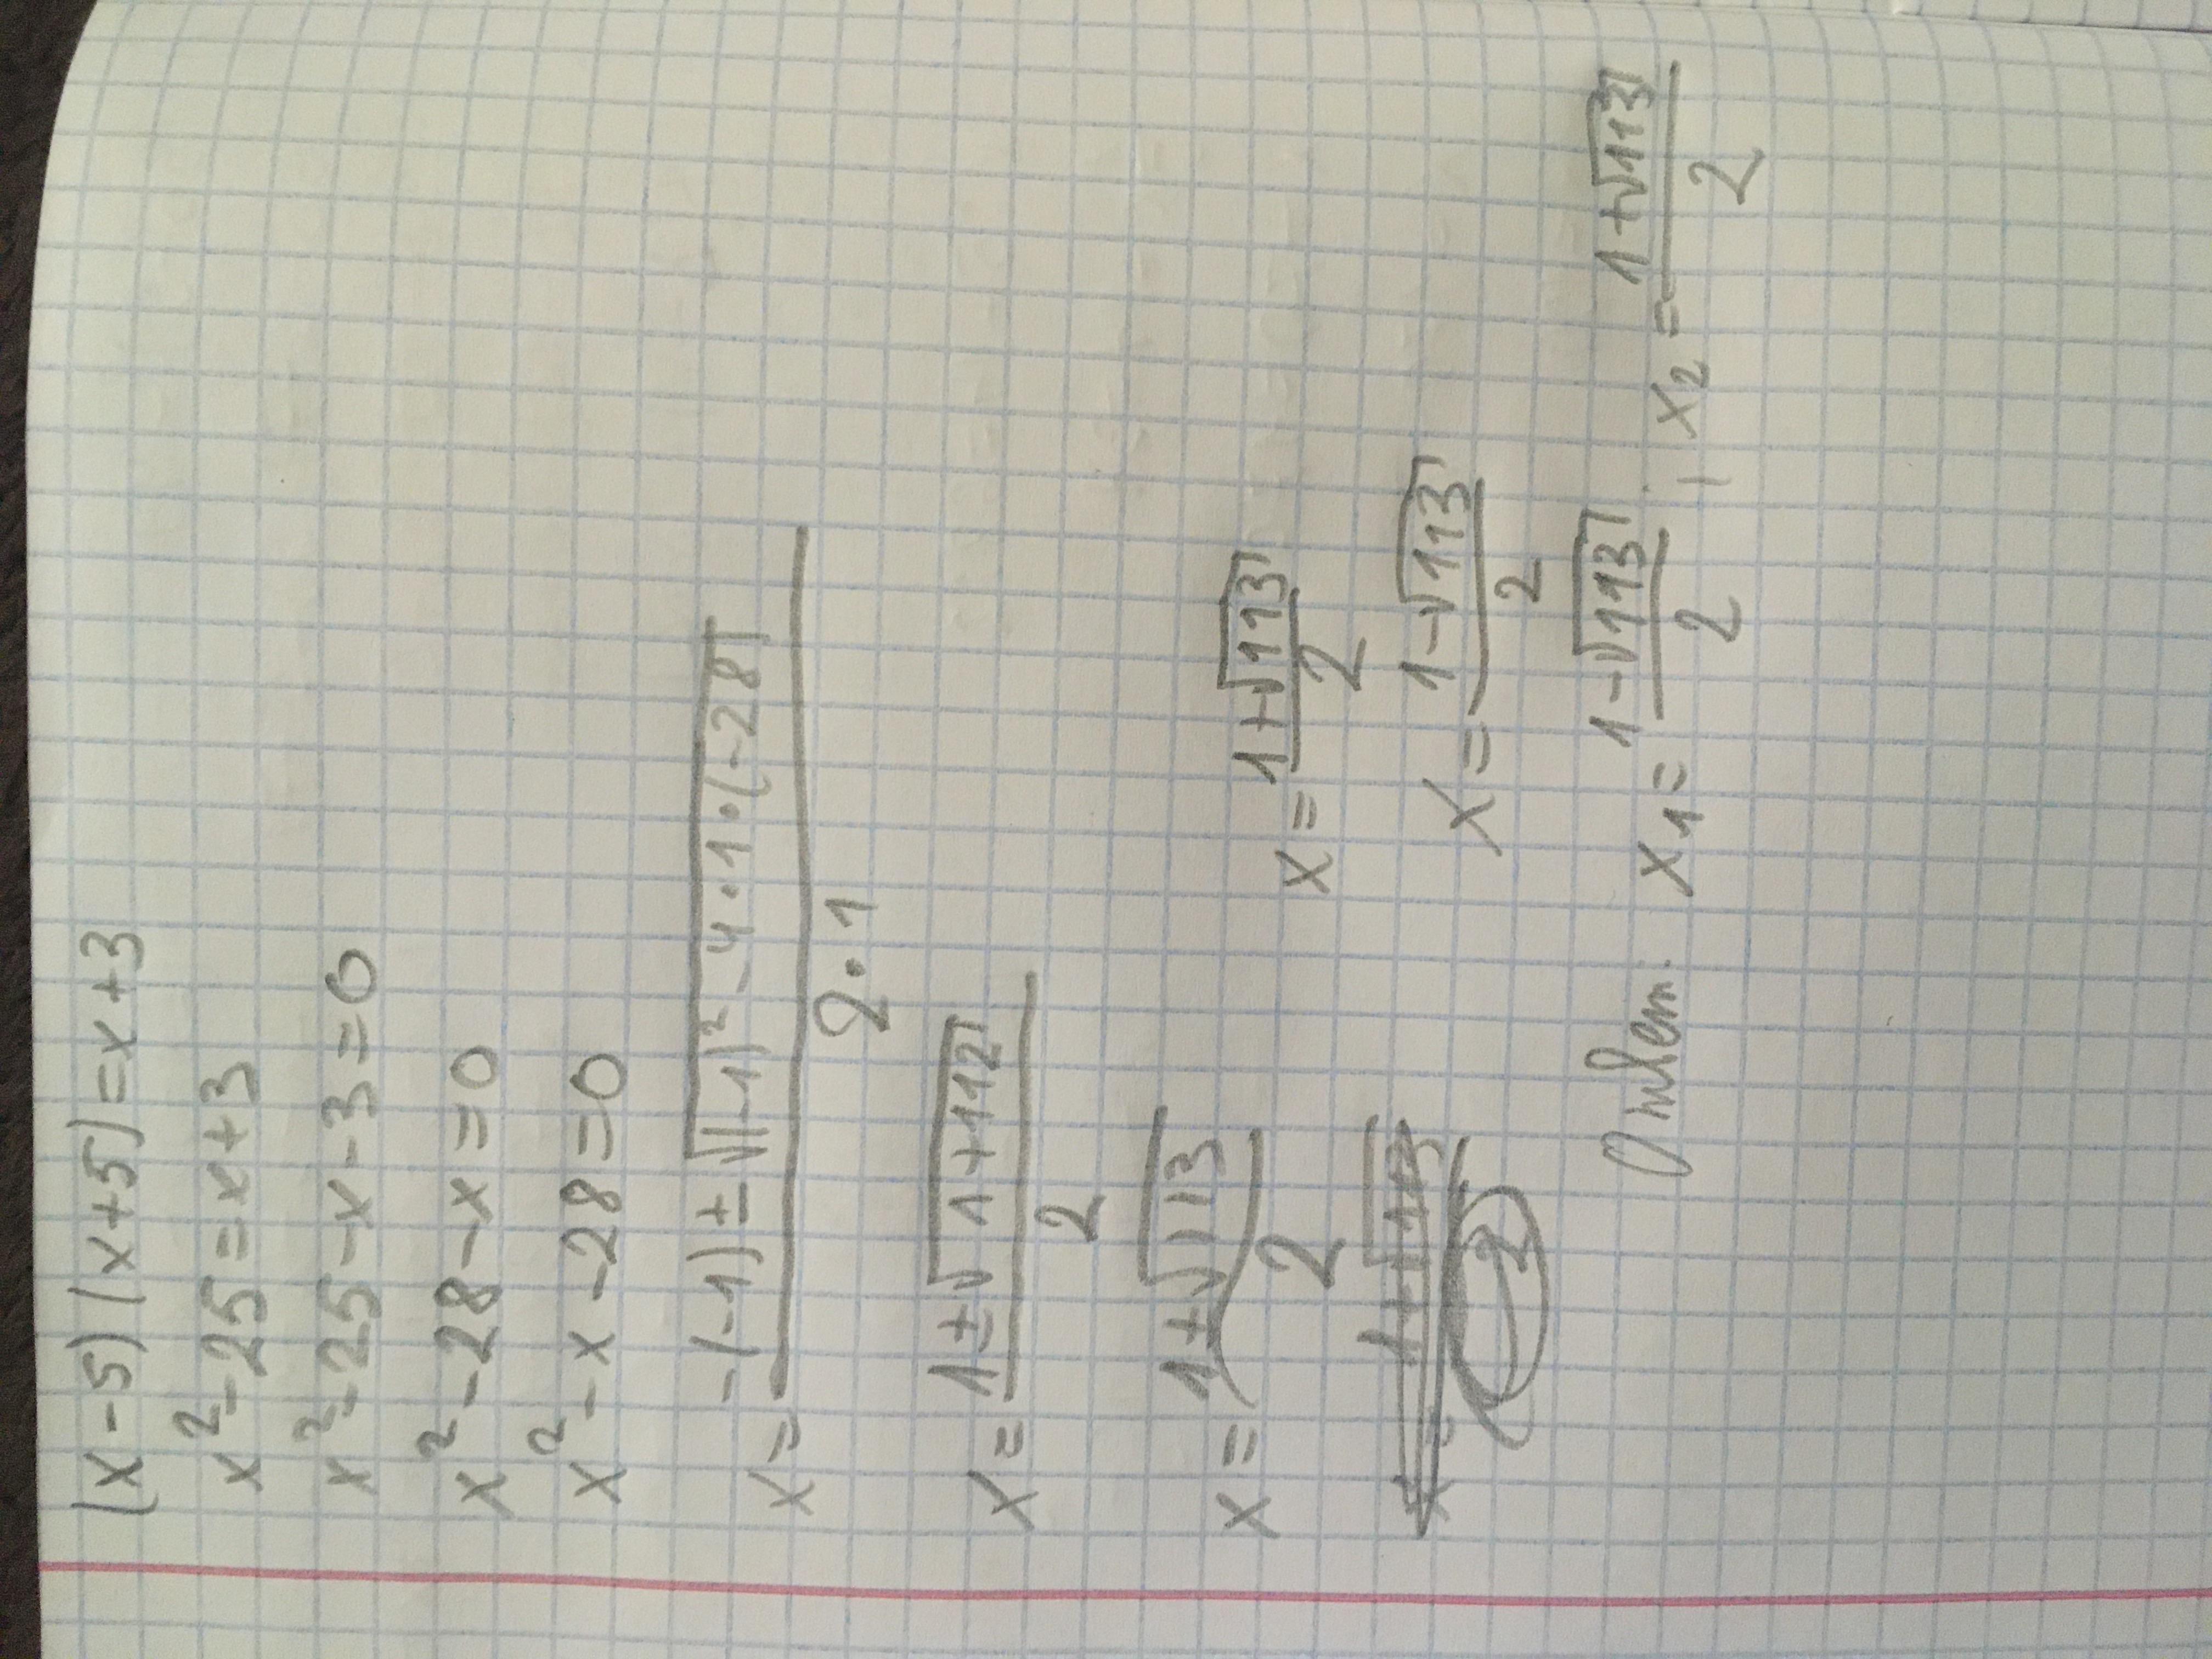 (x-5)(x+5)=x+3
x²-25=x+3
x²-25-x-3=0
x²-28-x=0
x²-x-28=0
x=(-(-1)±√((-1)²-4·1·(-28)))/(2·1)
x=(1±√(1+112))/2
x=(1±√113)/2
x=(1+√113)/2
x=(1-√113)/2
Ответ: x₁=(1-√113)/2; x₂=(1+√113)/2